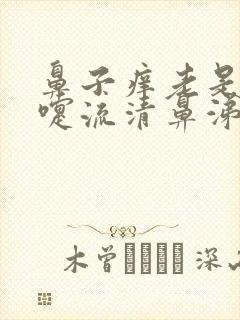 鼻子痒老是
嚏流清鼻涕
木曾 深